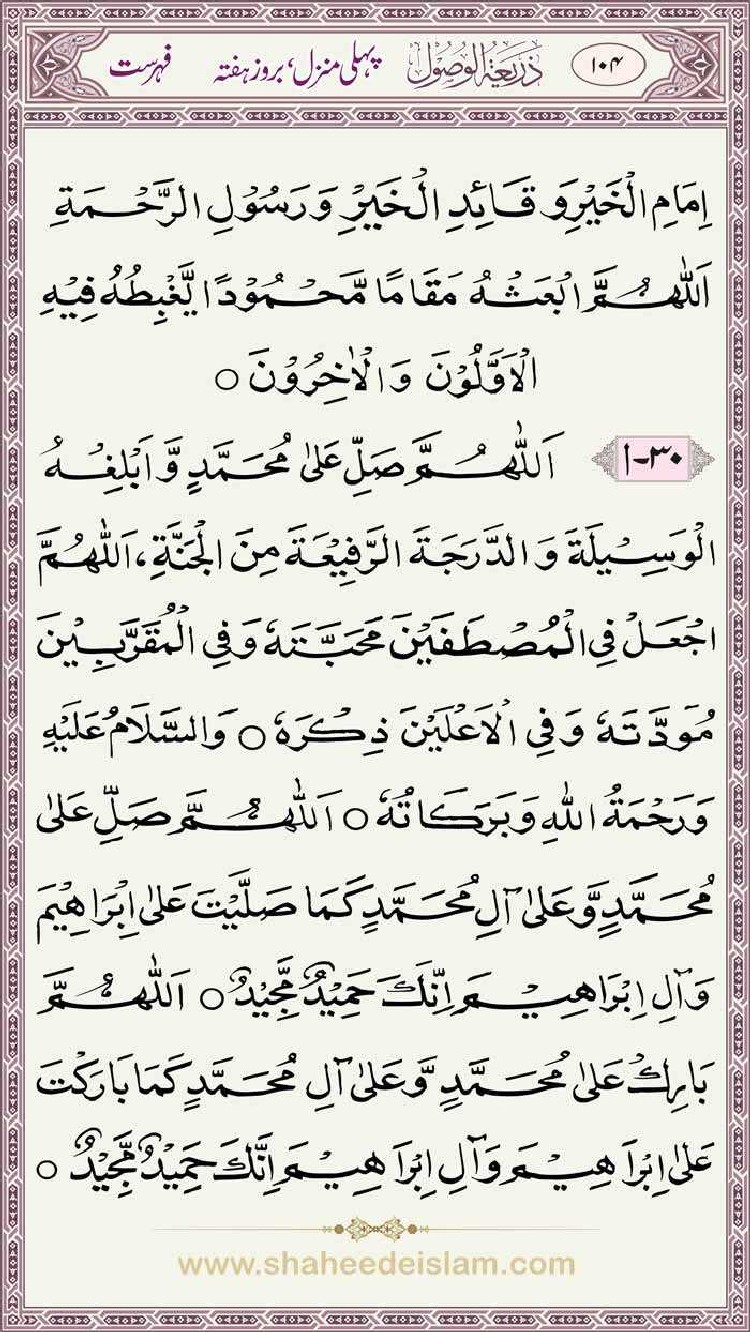 ۱۰۴ ذَرِيعَةُ الوُصُول پہلی منزل، بروز ہفتہ فہرست
اِمَامِ الْخَيْرِ وَ قَائِدِ الْخَيْرِ وَ رَسُوْلِ الرَّحْمَةِ
اَللّٰهُمَّ ابْعَثْهُ مَقَامًا مَّحْمُوْدًا يَّغْبِطُهٗ فِيْهِ
الْاَوَّلُوْنَ وَالْاٰخِرُوْنَ ○
۳۰-أ اَللّٰهُمَّ صَلِّ عَلٰى مُحَمَّدٍ وَّ اَبْلِغْهُ
الْوَسِيْلَةَ وَ الدَّرَجَةَ الرَّفِيْعَةَ مِنَ الْجَنَّةِ، اَللّٰهُمَّ
اجْعَلْ فِي الْمُصْطَفَيْنَ مَحَبَّتَهٗ وَفِي الْمُقَرَّبِيْنَ
مُوَدَّتَهٗ وَفِي الْاَعْلَيْنَ ذِكْرَهٗ ○ وَالسَّلَامُ عَلَيْهِ
وَرَحْمَةُ اللّٰهِ وَبَرَكَاتُهٗ ○ اَللّٰهُمَّ صَلِّ عَلٰى
مُحَمَّدٍ وَّعَلٰى آلِ مُحَمَّدٍ كَمَا صَلَّيْتَ عَلٰى اِبْرَاهِيْمَ
وَآلِ اِبْرَاهِيْمَ اِنَّكَ حَمِيْدٌ مَّجِيْدٌ ○ اَللّٰهُمَّ
بَارِكْ عَلٰى مُحَمَّدٍ وَّعَلٰى آلِ مُحَمَّدٍ كَمَا بَارَكْتَ
عَلٰى اِبْرَاهِيْمَ وَآلِ اِبْرَاهِيْمَ اِنَّكَ حَمِيْدٌ مَّجِيْدٌ ○
www.shaheedeislam.com